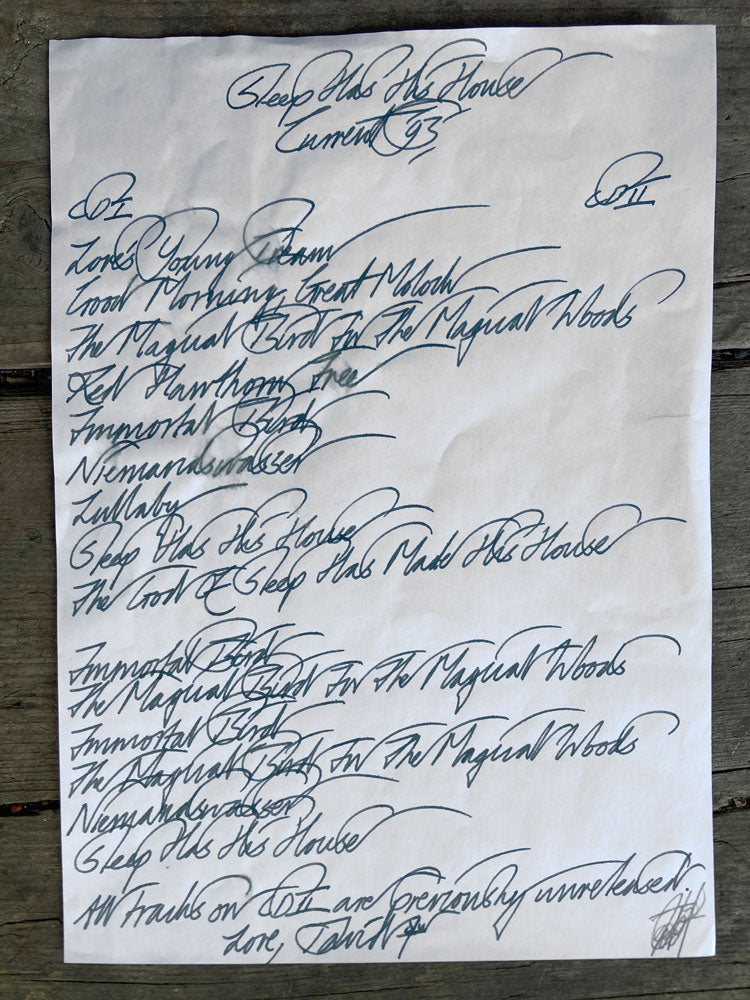 Sleep Has His House
Current 93
CD I
CD II
Love's Young Dream
Good Morning, Great Moloch
The Magical Bird In The Magical Woods
Red Hawthorn Tree
Immortal Bird
Niemandswasser
Lullaby
Sleep Has His House
The God Of Sleep Has Made His House
Immortal Bird
The Magical Bird In The Magical Woods
Immortal Bird
The Magical Bird In The Magical Woods
Niemandswasser
Sleep Has His House
All tracks on CD II are previously unreleased
Love, David